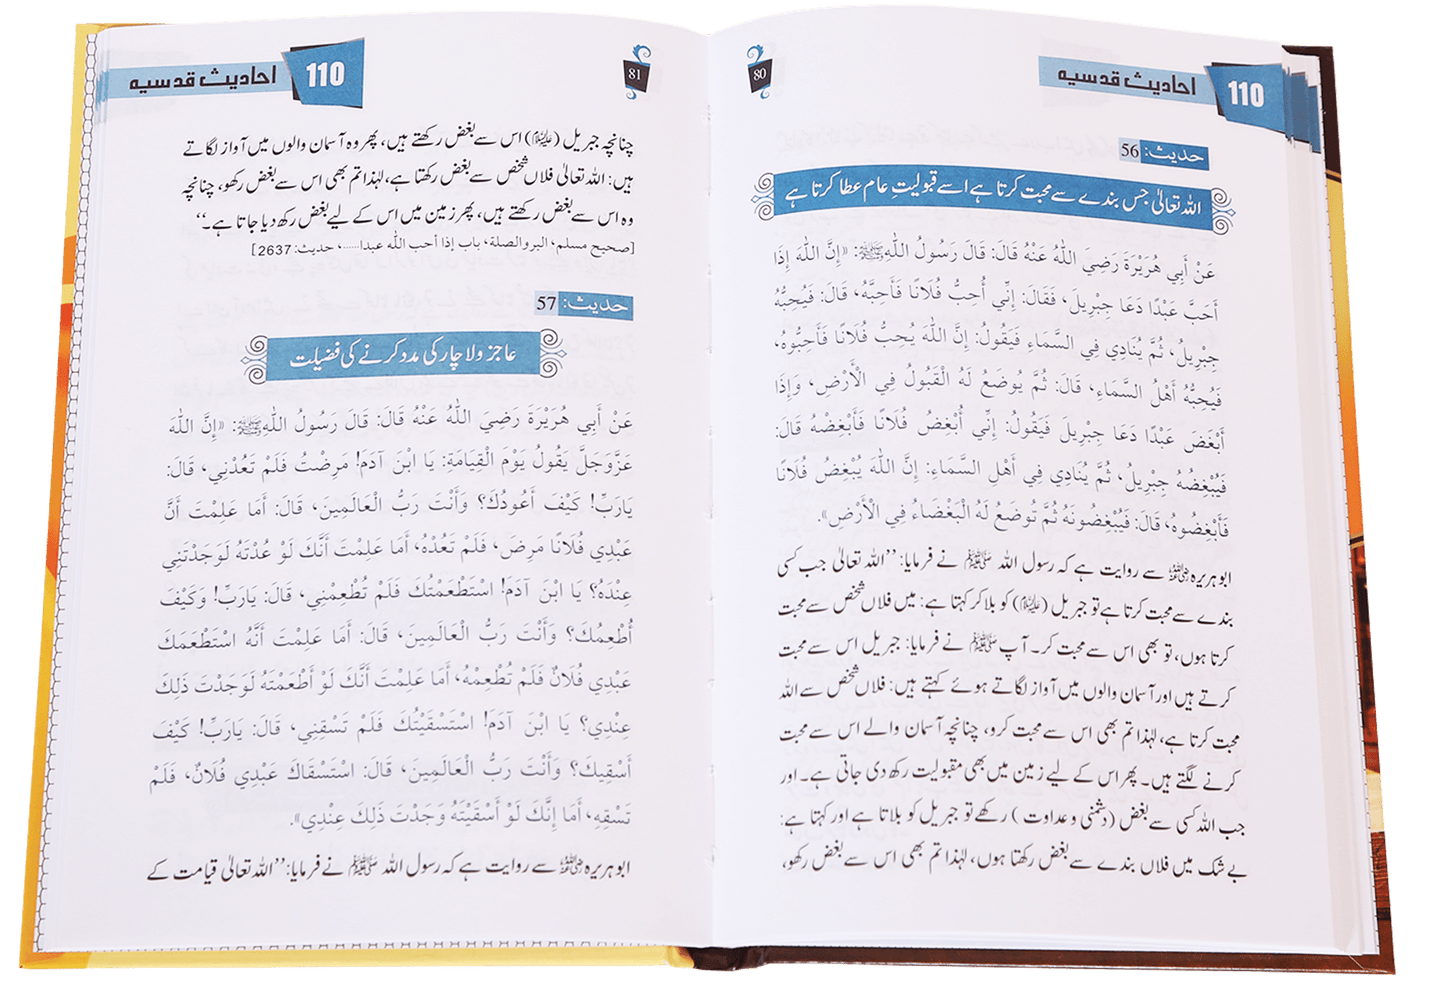 110 احادیث قدسیہ
80
حدیث: 56
اللہ تعالیٰ جس بندے سے محبت کرتا ہے اسے قبولیتِ عام عطا کرتا ہے
عَنْ أَبِي هُرَيْرَةَ رَضِيَ اللّٰهُ عَنْهُ قَالَ: قَالَ رَسُولُ اللّٰهِ ﷺ: «إِنَّ اللّٰهَ إِذَا
أَحَبَّ عَبْدًا دَعَا جِبْرِيلَ، فَقَالَ: إِنِّي أُحِبُّ فُلَانًا فَأَحِبَّهُ، قَالَ: فَيُحِبُّهُ
جِبْرِيلُ، ثُمَّ يُنَادِي فِي السَّمَاءِ فَيَقُولُ: إِنَّ اللّٰهَ يُحِبُّ فُلَانًا فَأَحِبُّوهُ،
فَيُحِبُّهُ أَهْلُ السَّمَاءِ، قَالَ: ثُمَّ يُوضَعُ لَهُ الْقَبُولُ فِي الْأَرْضِ، وَإِذَا
أَبْغَضَ عَبْدًا دَعَا جِبْرِيلَ فَيَقُولُ: إِنِّي أُبْغِضُ فُلَانًا فَأَبْغِضْهُ قَالَ:
فَيُبْغِضُهُ جِبْرِيلُ، ثُمَّ يُنَادِي فِي أَهْلِ السَّمَاءِ: إِنَّ اللّٰهَ يُبْغِضُ فُلَانًا
فَأَبْغِضُوهُ، قَالَ: فَيُبْغِضُونَهُ ثُمَّ تُوضَعُ لَهُ الْبَغْضَاءُ فِي الْأَرْضِ».
ابو ہریرہ رضی اللہ عنہ سے روایت ہے کہ رسول اللہ ﷺ نے فرمایا: ’’اللہ تعالیٰ جب کسی
بندے سے محبت کرتا ہے تو جبریل (علیہ السلام) کو بلا کر کہتا ہے: میں فلاں شخص سے محبت
کرتا ہوں، تو بھی اس سے محبت کر۔ آپ ﷺ نے فرمایا: جبریل اس سے محبت
کرتے ہیں اور آسمان والوں میں آواز لگاتے ہوئے کہتے ہیں: فلاں شخص سے اللہ
محبت کرتا ہے، لہٰذا تم بھی اس سے محبت کرو، چنانچہ آسمان والے اس سے محبت
کرنے لگتے ہیں۔ پھر اس کے لیے زمین میں بھی مقبولیت رکھ دی جاتی ہے۔ اور
جب اللہ کسی سے بغض (دشمنی و عداوت) رکھے تو جبریل کو بلاتا ہے اور کہتا ہے:
بے شک میں فلاں بندے سے بغض رکھتا ہوں، لہٰذا تم بھی اس سے بغض رکھو،
110 احادیث قدسیہ
81
چنانچہ جبریل (علیہ السلام) اس سے بغض رکھتے ہیں، پھر وہ آسمان والوں میں آواز لگاتے
ہیں: اللہ تعالیٰ فلاں شخص سے بغض رکھتا ہے، لہٰذا تم بھی اس سے بغض رکھو، چنانچہ
وہ اس سے بغض رکھتے ہیں، پھر زمین میں اس کے لیے بغض رکھ دیا جاتا ہے۔‘‘
[صحیح مسلم، البر والصلة، باب إذا أحب اللّٰه عبدا......، حدیث: 2637]
حدیث: 57
عاجز و لاچار کی مدد کرنے کی فضیلت
عَنْ أَبِي هُرَيْرَةَ رَضِيَ اللّٰهُ عَنْهُ قَالَ: قَالَ رَسُولُ اللّٰهِ ﷺ: «إِنَّ اللّٰهَ
عَزَّوَجَلَّ يَقُولُ يَوْمَ الْقِيَامَةِ: يَا ابْنَ آدَمَ! مَرِضْتُ فَلَمْ تَعُدْنِي، قَالَ:
يَارَبِّ! كَيْفَ أَعُودُكَ؟ وَأَنْتَ رَبُّ الْعَالَمِينَ، قَالَ: أَمَا عَلِمْتَ أَنَّ
عَبْدِي فُلَانًا مَرِضَ، فَلَمْ تَعُدْهُ، أَمَا عَلِمْتَ أَنَّكَ لَوْ عُدْتَهُ لَوَجَدْتَنِي
عِنْدَهُ؟ يَا ابْنَ آدَمَ! اسْتَطْعَمْتُكَ فَلَمْ تُطْعِمْنِي، قَالَ: يَارَبِّ! وَكَيْفَ
أُطْعِمُكَ؟ وَأَنْتَ رَبُّ الْعَالَمِينَ، قَالَ: أَمَا عَلِمْتَ أَنَّهُ اسْتَطْعَمَكَ
عَبْدِي فُلَانٌ فَلَمْ تُطْعِمْهُ، أَمَا عَلِمْتَ أَنَّكَ لَوْ أَطْعَمْتَهُ لَوَجَدْتَ ذَلِكَ
عِنْدِي؟ يَا ابْنَ آدَمَ! اسْتَسْقَيْتُكَ فَلَمْ تَسْقِنِي، قَالَ: يَارَبِّ! كَيْفَ
أَسْقِيكَ؟ وَأَنْتَ رَبُّ الْعَالَمِينَ، قَالَ: اسْتَسْقَاكَ عَبْدِي فُلَانٌ، فَلَمْ
تَسْقِهِ، أَمَا إِنَّكَ لَوْ أَسْقَيْتَهُ وَجَدْتَ ذَلِكَ عِنْدِي».
ابو ہریرہ رضی اللہ عنہ سے روایت ہے کہ رسول اللہ ﷺ نے فرمایا: ’’اللہ تعالیٰ قیامت کے